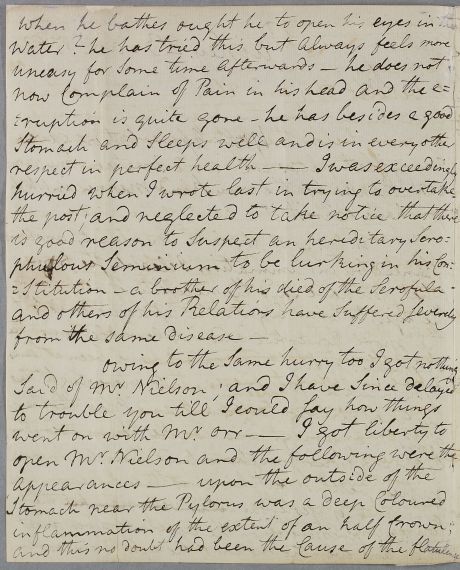 when he bathes ought he to open his eyes in the
water? he has tried this but always feels more
uneasy for some time afterwards — he does not
now complain of Pain in his head and the e=
=ruption is quite gone — he has besides a good
Stomach and Sleeps well and is in every other
respect in perfect health — — I was exceedingly
hurried when I wrote last in trying to overtake
the post, and neglected to take notice that there
is good reason to Suspect an hereditary Scro=
phulous Seminium to be lurking in his Con=
=stitution — a brother of his died of the Scrofula —
and others of his Relations have suffered severely
from the same disease —
owing to the same hurry too I got nothing
Said of Mr. Nielson, and I have since delayed
to trouble you till I could say how things
went on with Mr. Orr — — I got liberty to
open Mr. Nielson and the following were the
appearances — upon the outside of the
Stomach near the Pylorus was a deep Coloured
inflammation of the extent of an half Crown;
and this no doubt had been the Cause of the flatulence